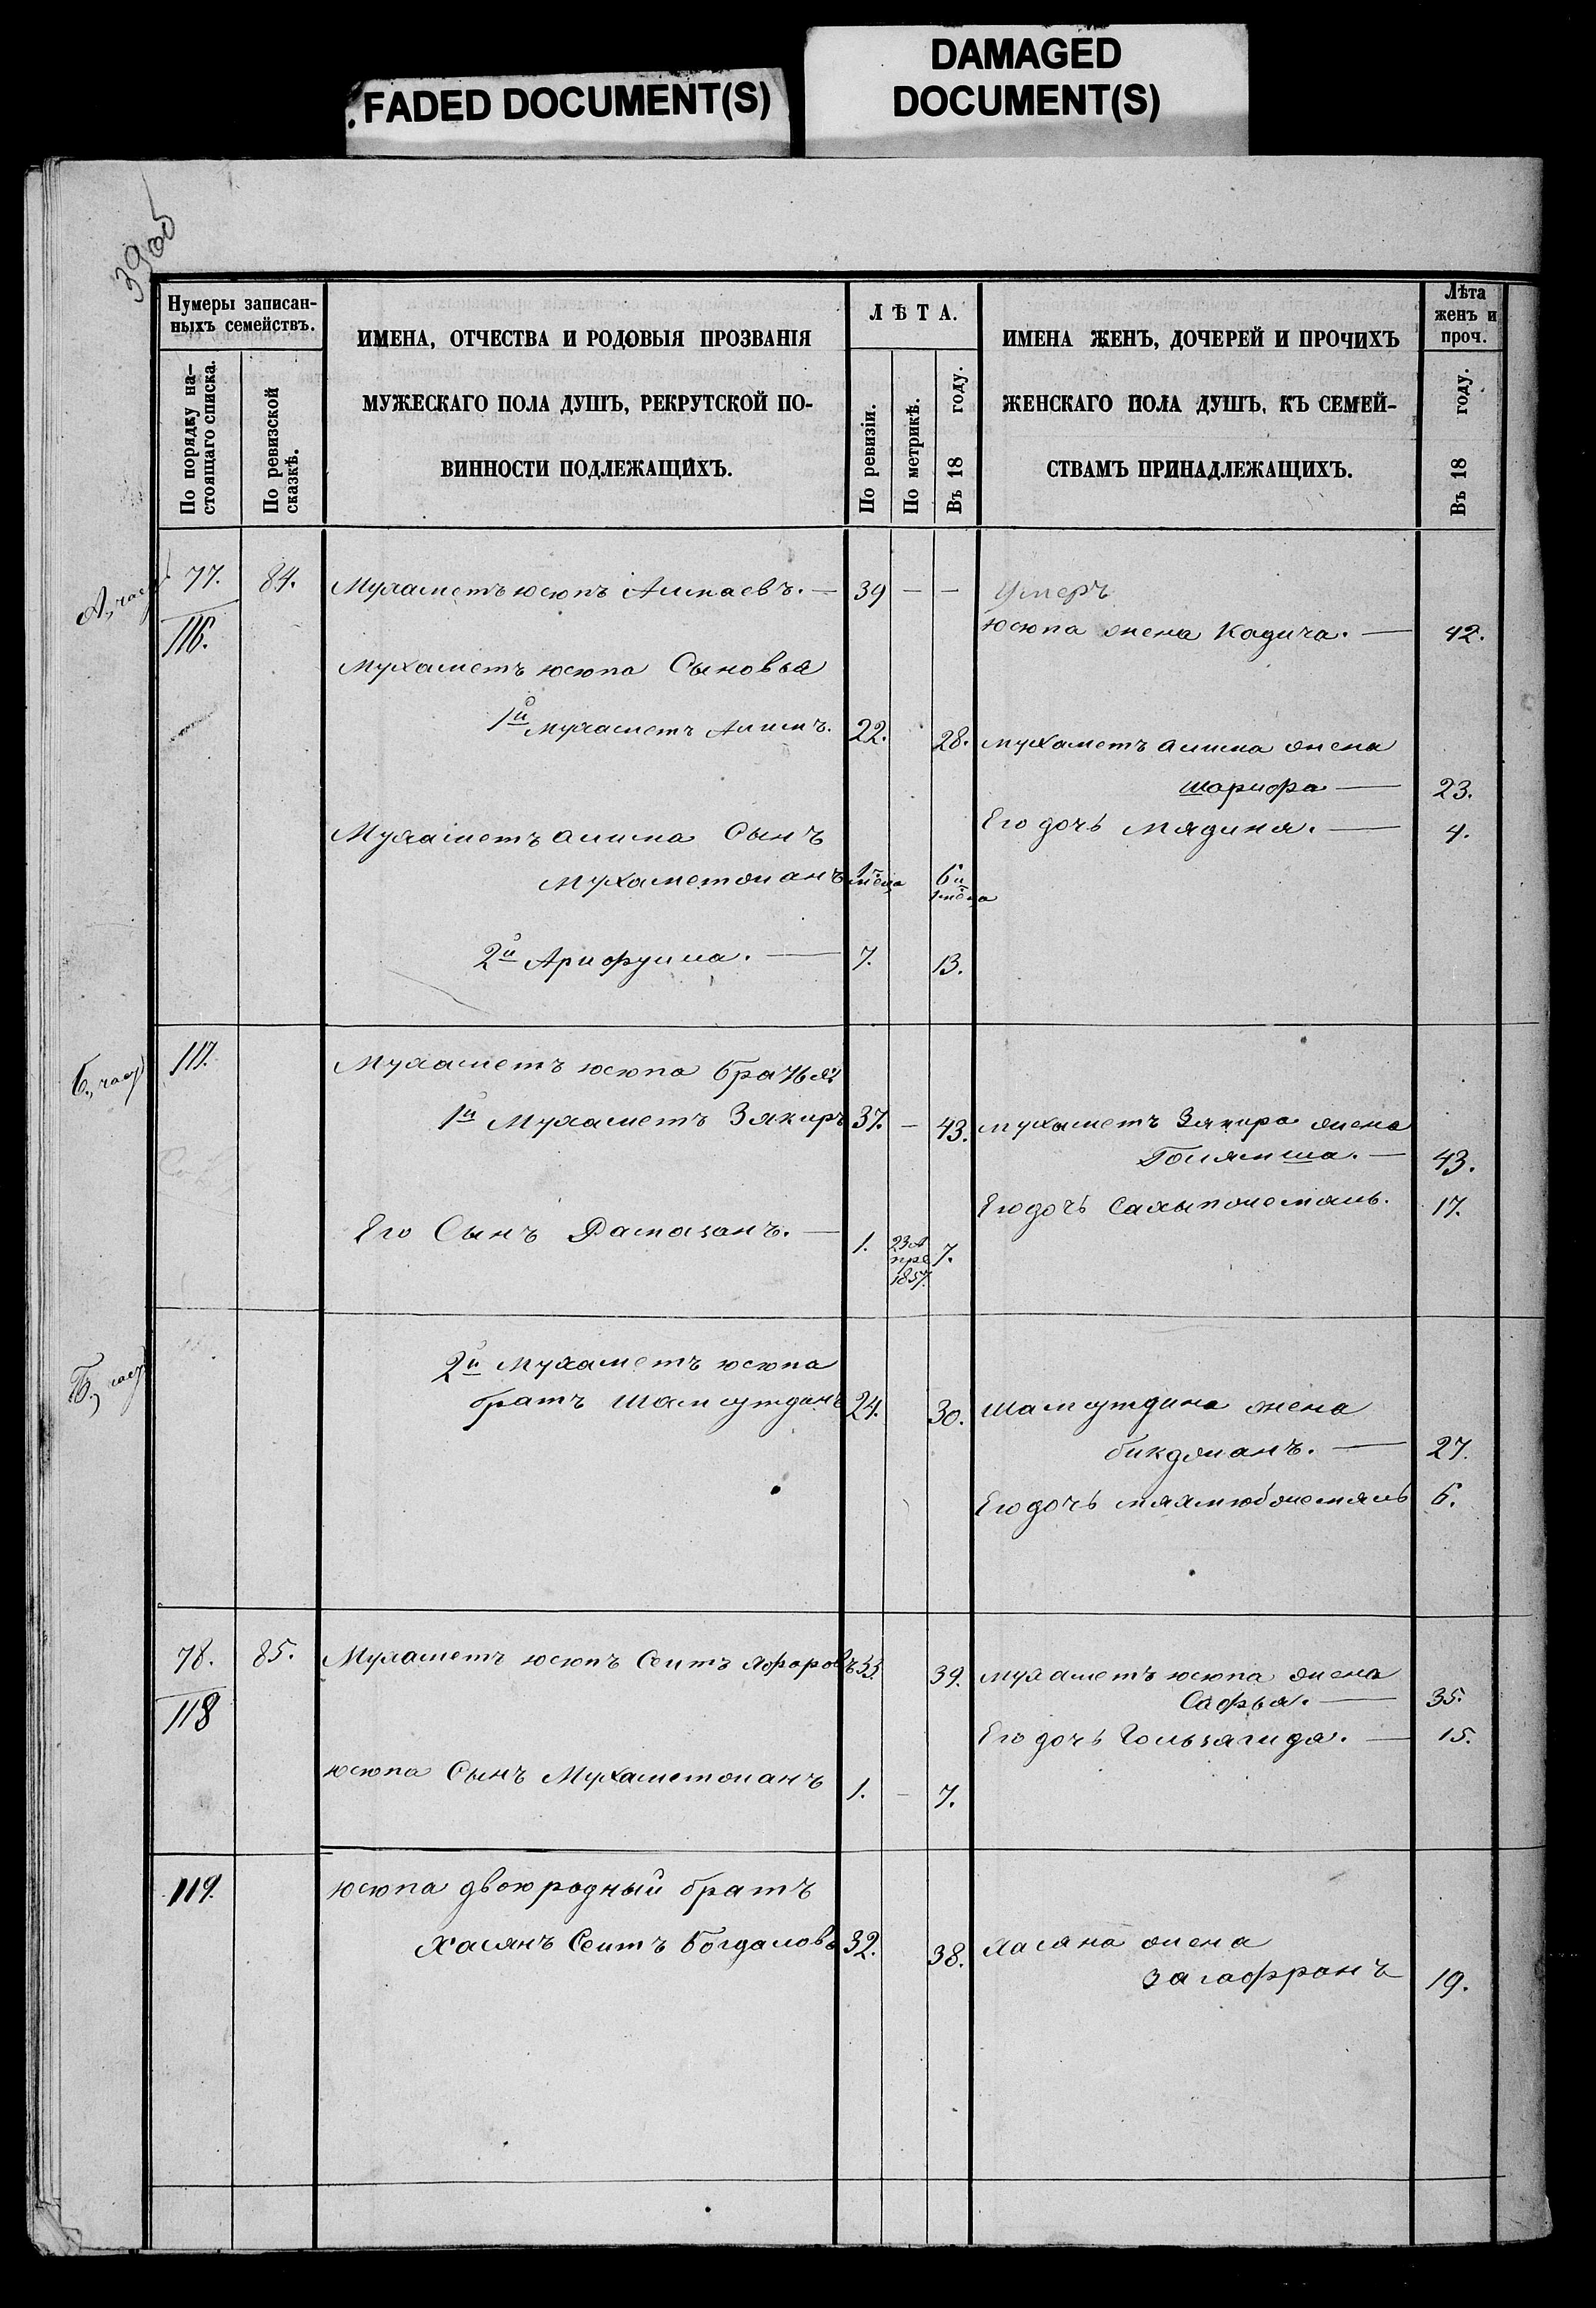 FADED DOCUMENT(S)
DAMAGED
DOCUMENT(S)
39об
Нумеры записан-
ныхъ семействъ.
По порядку на-
стоящаго списка.
По ревизской
сказкѣ.
ИМЕНА, ОТЧЕСТВА И РОДОВЫЯ ПРОЗВАНІЯ
МУЖЕСКАГО ПОЛА ДУШЪ, РЕКРУТСКОЙ ПО-
ВИННОСТИ ПОДЛЕЖАЩИХЪ.
ЛѢТА.
По ревизіи.
По метрикѣ.
Въ 18 году.
ИМЕНА ЖЕНЪ, ДОЧЕРЕЙ И ПРОЧИХЪ
ЖЕНСКАГО ПОЛА ДУШЪ, КЪ СЕМЕЙ-
СТВАМЪ ПРИНАДЛЕЖАЩИХЪ.
Лѣта
женъ и
проч.
Въ 18 году.
77. 84. Мухаметъ юсюпъ Алпаевъ. — 39 — — Умеръ
116. юсюпа жена Кадича. — 42.
Мухаметъ юсюпа Сыновья
1й Мухаметъ Алимъ. 22. 28. мухаметъ алима жена
шарифа — 23.
Мухаметъ алима Сынъ Его дочь мядиня. — 4.
Мухаметжанъ
2й Арифулла. — 7. 13.
117. Мухаметъ юсюпа братья
1й Мухаметъ Зякиръ 37. — 43. мухаметъ Зякира жена
43.
Его дочь 17.
Его Сынъ Рамазанъ. — 1. 23 А
пре
1857. 7.
2й Мухаметъ юсюпа
братъ шамсутдинъ 24. 30. шамсутдина жена
бикджанъ. — 27.
Его дочь 6.
78. 85. Мухаметъ юсюпъ Сеитъ Яфаровъ 33. 39. мухаметъ юсюпа жена
118 Сафья. — 35.
Его дочь — 15.
юсюпа Сынъ Мухаметжанъ 1. — 7.
119. юсюпа двоюродный братъ
Хасянъ Сеитъ Богдаловъ 32. 38. Хасяна жена
загафранъ 19.